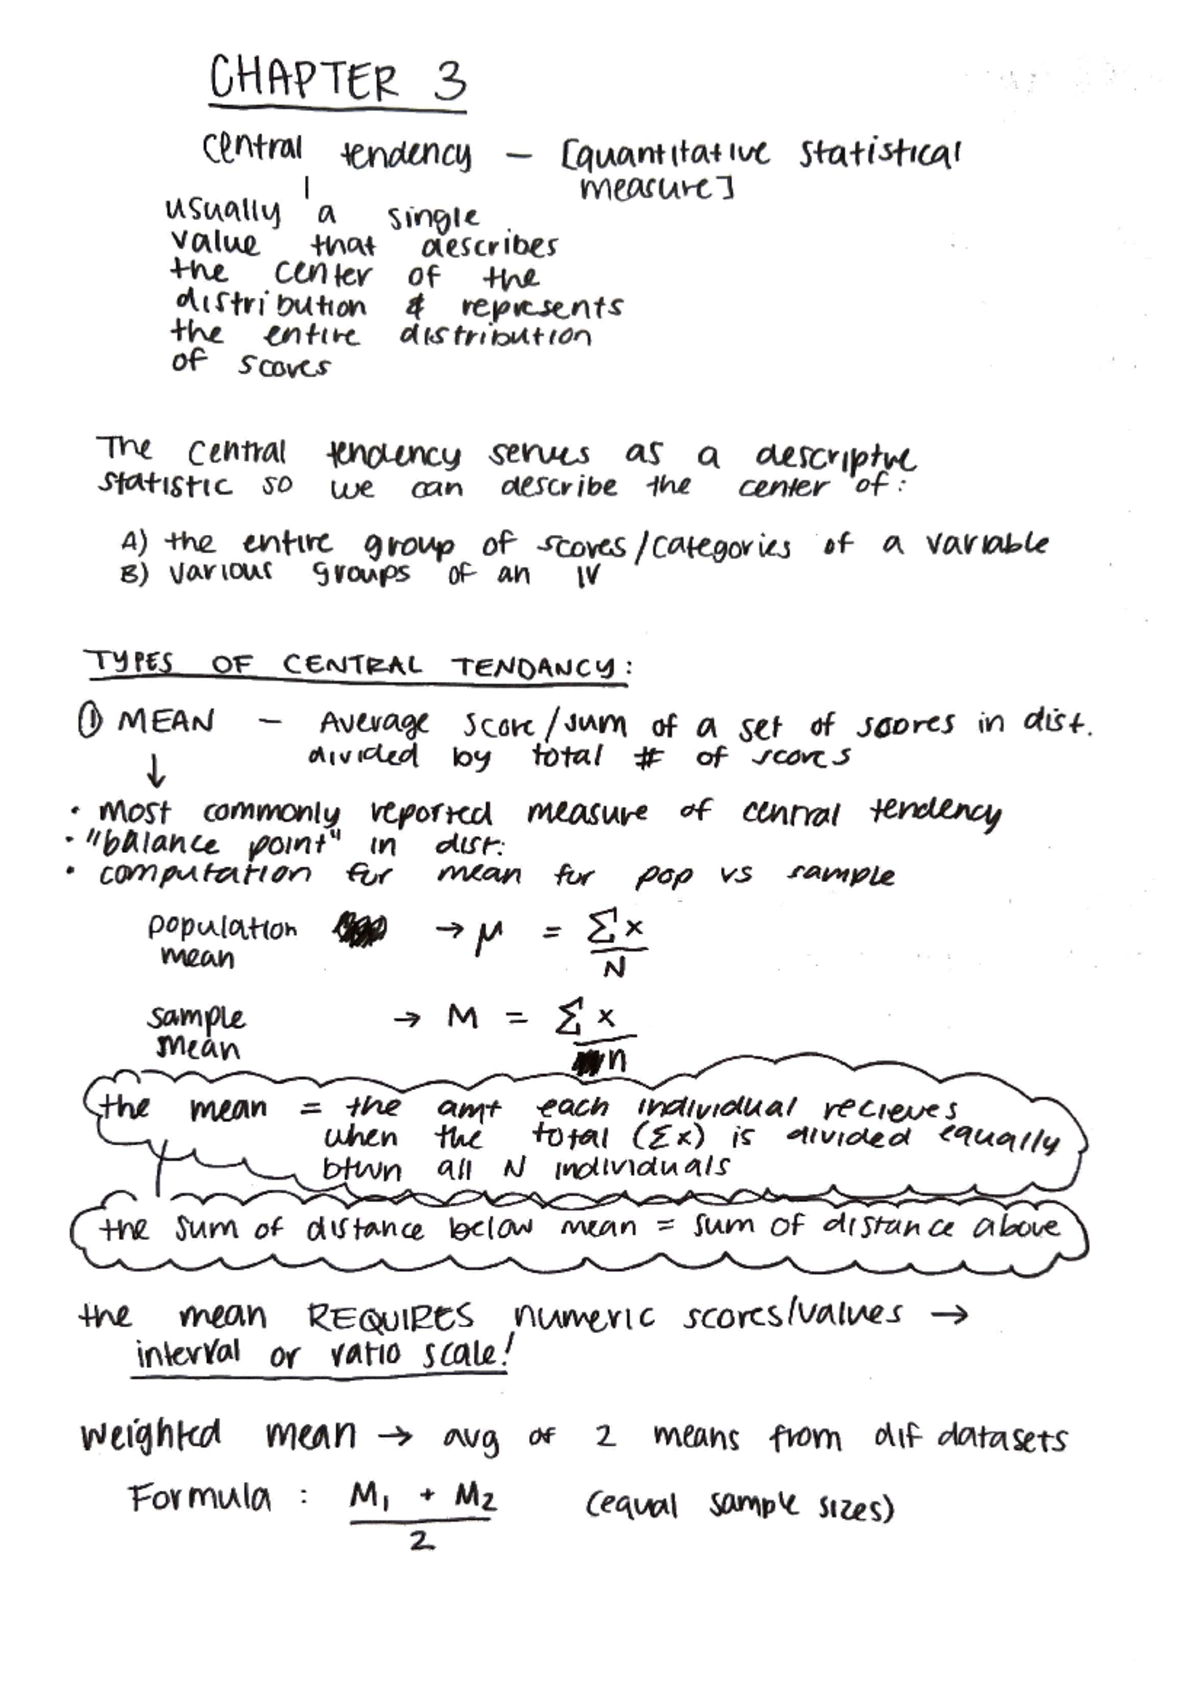 CHAPTER 3
central tendency – [quantitative statistical
measure]
usually a single
value that describes
the center of the
distribution & represents
the entire distribution
of scores
The central tendency serves as a descriptive
statistic so we can describe the center of:
A) the entire group of scores/categories of a variable
B) various groups of an IV
TYPES OF CENTRAL TENDANCY:
① MEAN – Average score/sum of a set of scores in dist.
divided by total # of scores
↓
• most commonly reported measure of central tendency
• "balance point" in dist.
• computation for mean for pop vs sample
population → μ = Σx
mean N
sample → M = Σx
mean n
the mean = the amt each individual recieves
when the total (Σx) is divided equally
btwn all N individuals
the sum of distance below mean = sum of distance above
the mean REQUIRES numeric scores/values →
interval or ratio scale!
weighted mean → avg of 2 means from dif datasets
Formula : M₁ + M₂ (equal sample sizes)
2